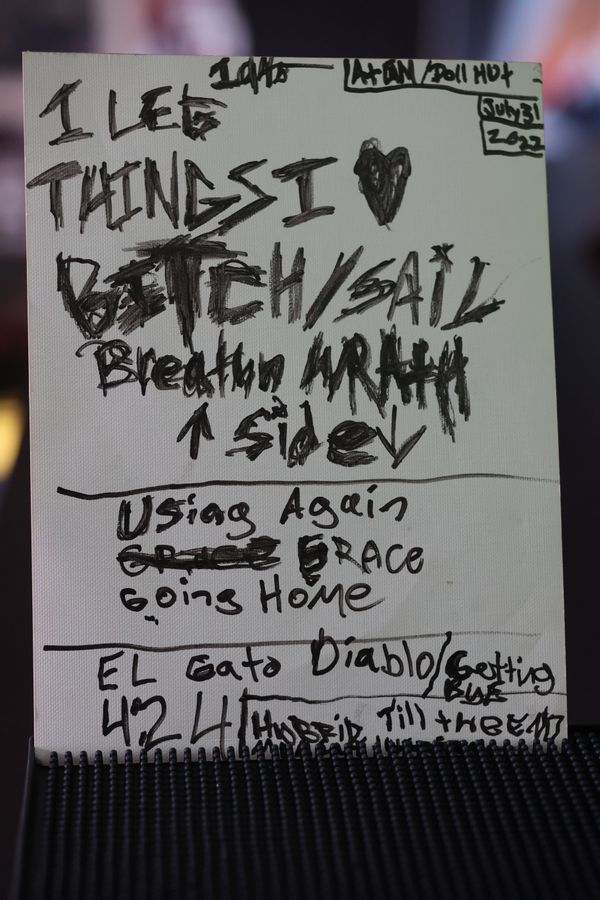 At AM/Doll Hut
July 31
2022
I LEG
THINGS I
BITCH/SAIL
Breathn WRATH
↑ Side ↓
Using Again
GRACE GRACE
Going Home
EL Gato Diablo/Getting
BYE
424 HYBRID Till the END